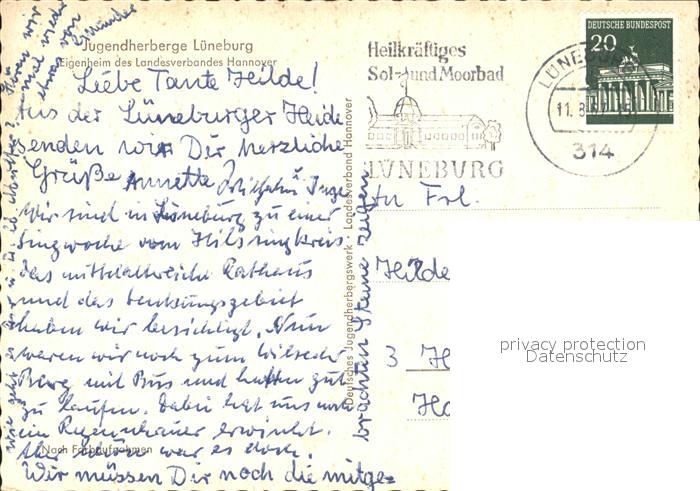 Jugendherberge Lüneburg
Eigenheim des Landesverbandes Hannover
Liebe Tante Hilde!
Aus der Lüneburger Heide
senden wir Dir herzliche
Grüße Annette, Wilhelm u. Inge
Wir sind in Lüneburg zu einer
Singwoche vom Hilssingkreis
das mittelalterliche Rathaus
und das Senkungsgebiet
haben wir besichtigt. Nun
waren wir noch zum Wilseder
Berg mit Bus und hatten gut
zu laufen. Dabei hat uns noch
ein Regenschauer erwischt.
Aber schön war es doch.
Nach Farbaufnahmen
Wir müssen Dir noch die mitge=
brachten Steine zeigen
wir
und
von
Deutsches Jugendherbergswerk · Landesverband Hannover
Heilkräftiges
Sol- und Moorbad
LÜNEBURG
DEUTSCHE BUNDESPOST
20
LÜNEBURG
11. 8.
314
An Frl.
Hilde
3 H
Ha
privacy protection
Datenschutz